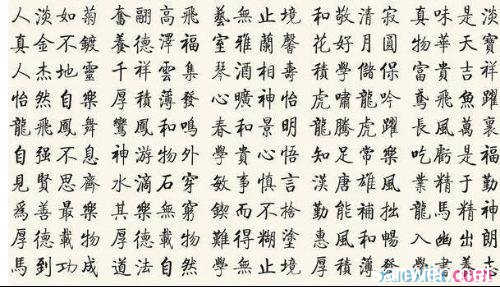 人淡如菊 奮翮高飛 藝無止境 和敬清寂 真味是淡
真金不鍍 養德澤福 室雅蘭馨 花好月圓 物華天寶
人杰地靈 千祥雲集 琴酒相壽 積學儲保 富貴吉祥
怡然自樂 厚積薄發 心曠神怡 虎嘯龍吟 鳶飛魚躍
龍飛鳳舞 鸞鳳和鳴 春和景明 龍騰虎躍 長風萬裏
自强不息 神游物外 學貴心悟 知足常樂 吃虧是福
見賢思齊 水滴石穿 敏事慎言 漢唐雄風 業精于勤
爲善最樂 其樂無窮 鍥而不捨 勤能補拙 龍馬精神
厚德載物 厚德載物 難得糊塗 惠風和暢 入幽出朗
馬到功成 道法自然 學無止境 厚積薄發 學書養